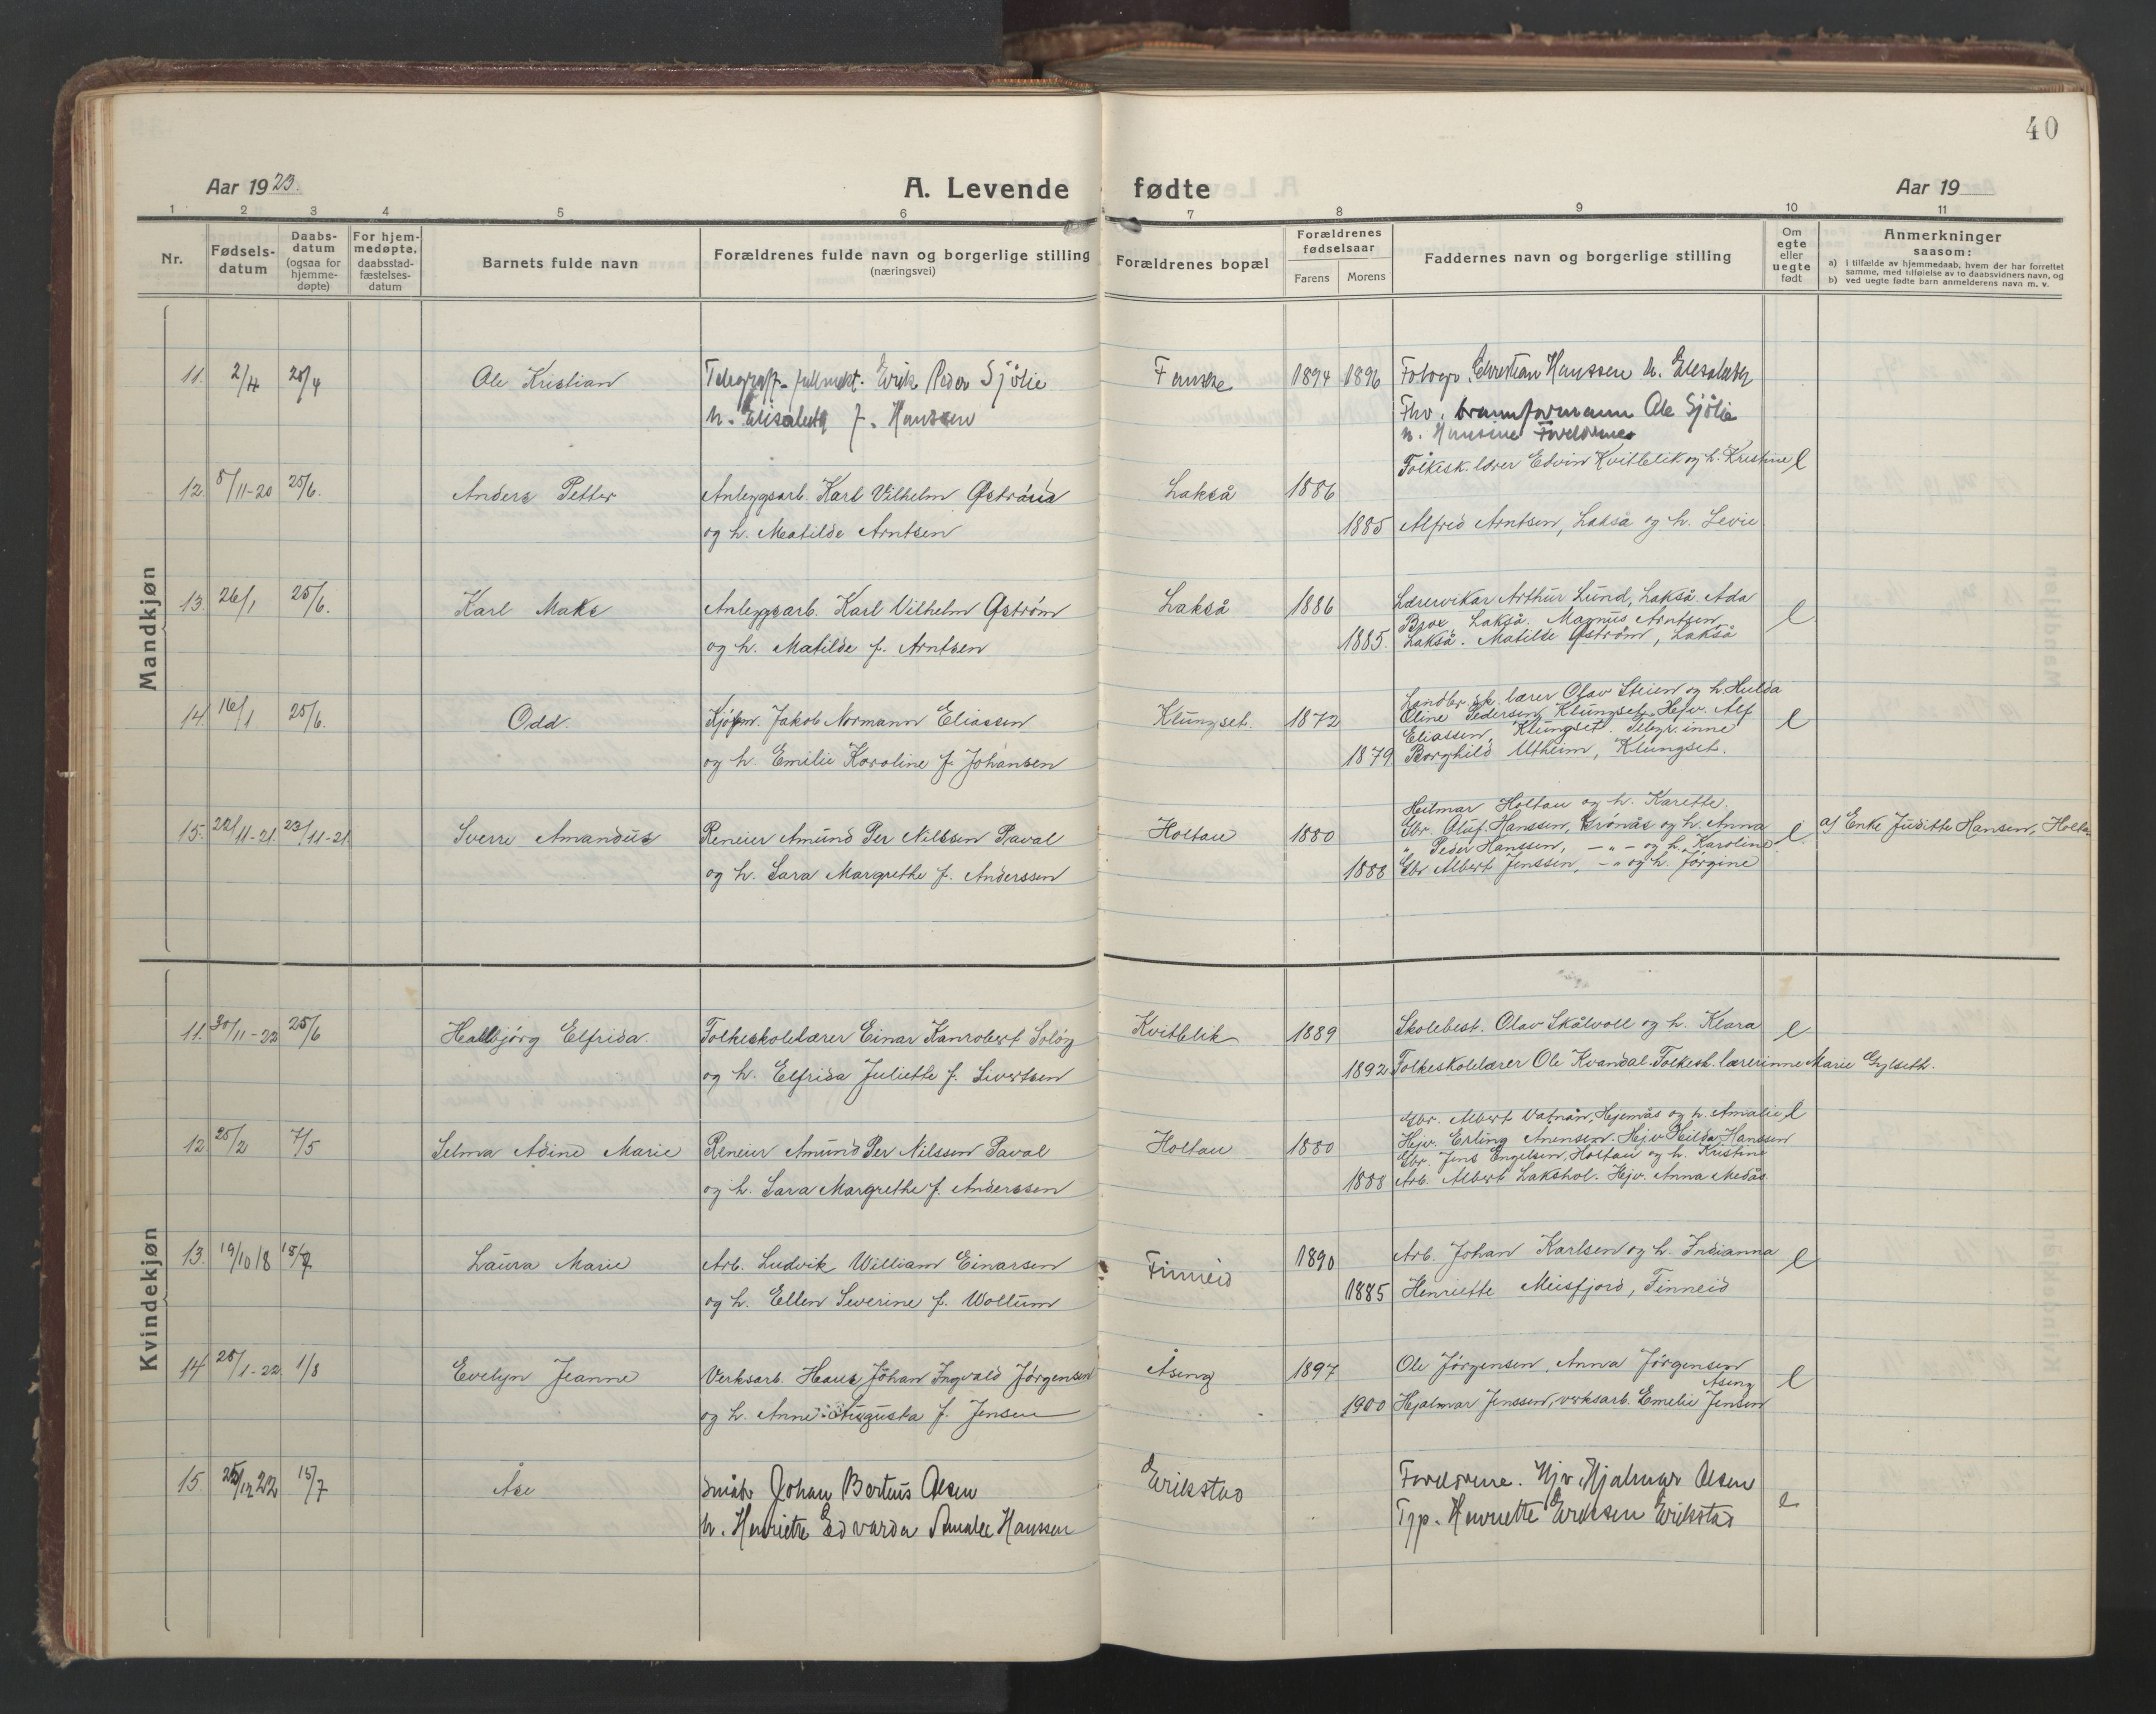 40
Aar 1923.
A. Levende fødte
Aar 19
1 2 3 4 5 6 7 8 9 10 11
Nr.
Fødsels-
datum
Daabs-
datum
(ogsaa for
hjemme-
døpte)
For hjem-
medøpte,
daabsstad-
fæstelses-
datum
Barnets fulde navn
Forældrenes fulde navn og borgerlige stilling
(næringsvei)
Forældrenes bopæl
Forældrenes
fødselsaar
Farens Morens
Faddernes navn og borgerlige stilling
Om
egte
eller
uegte
født
Anmerkninger
saasom:
a) i tilfælde av hjemmedaab, hvem der har forrettet
samme, med tilføielse av to daabsvidners navn, og
b) ved uegte fødte barn anmelderens navn m. v.
Mandkjøn
11. 2/4 Ole Kristian Telegraf-fullmekt. Erik Peder Sjölie Fauske 1894 1896 Fotogr. Christian Hanssen h. Elisabeth
h. Elisabeth f. Hanssen Fhv. brannformann Ole Sjölie
h. Hansine Foreldrene
Folkesk.lærer Edvin Kvitblik og h. Kristine e
12. 8/11-20 25/6. Anders Petter Anleggsarb. Karl Vilhelm Øström Lakså 1886
og h. Matilde Arntsen 1885 Alfred Arntsen, Lakså og h. Levie
13. 26/1 25/6. Karl Maks Anleggsarb. Karl Vilhelm Østrøm Lakså 1886 Lærervikar Arthur Lund, Lakså. Ada e
Brox, Lakså. Magnus Arntsen
og h. Matilde f. Arntsen 1885. Lakså. Matilde Østrøm, Lakså
14. 16/1 25/6. Odd. Kjøpm. Jakob Normann Eliassen Klungset. 1872 Landbr.sk. lærer Olav Steien og h. Hulda
Eline Pedersen, Klungset. Hjv. Alf e
Eliassen, Klungset. Telegr.inne
og h. Emilie Karoline f. Johansen 1879 Borghild Utheim, Klungset.
15. 22/11-21. 23/11-21. Sverre Amandus Reneier Amund Per Nilssen Paval Holtan 1880 Heilmar Holtan og h. Karette.
Gbr. Oluf Hanssen, Grønås og h. Anna e af Enke Juditte Hansen,
" Peder Hanssen, - " - og h. Karoline
og h. Sara Margrethe f. Anderssen 1888 Gbr Albert Jenssen, - " og h. Jørgine
Kvindekjøn
11. 30/11-22 25/6 Hallbjørg Elfrida. Folkeskolelærer Einar Kanrobert Solöy Kvitblik 1889 Skolebest. Olav Skålvoll og h. Klara e
og h. Elfrida Juliette f. Sivertsen 1892 Folkeskolelærer Ole Kvandal. Folkesk. lærerinne Marie Gylseth.
12 25/2 7/5 Selma Adine Marie Reneier Amund Per Nilssen Paval Holtan 1880 Gbr. Albert Vatnån, Hjemås og h. Amalie e
Hjv. Erling Anensen. Hjv. Hilda Hanssen
Gbr. Jens Engelsen, Holtan og h. Kristine
og h. Sara Margrethe f. Anderssen 1888 Arb. Albert Lakshol. Hjv. Anna Medås
13. 19/10 18 Laura Marie Arb. Ludvik William Einarsen Finneid 1890 Arb. Johan Karlsen og h. Indianna e
og h. Ellen Severine f. Wollum 1885 Henriette Meisfjord, Finneid
14 25/1-22 1/8 Evelyn Jeanne Verksarb. Hans Johan Ingvald Jørgensen Åseng 1897 Ole Jørgensen, Anna Jørgensen e
Aseng
og h. Anne Augusta f. Jensen 1900 Hjalmar Jenssen, verksarb. Emelie Jensen
15. 15/7 Åse Småbr Johan Bertus Olsen Erikstad Foreldrene. Hjv. Hjalmar Olsen
h. Henriette Edvarda Amalie Hanssen Tjp. Henriette Eriksen Erikstad e